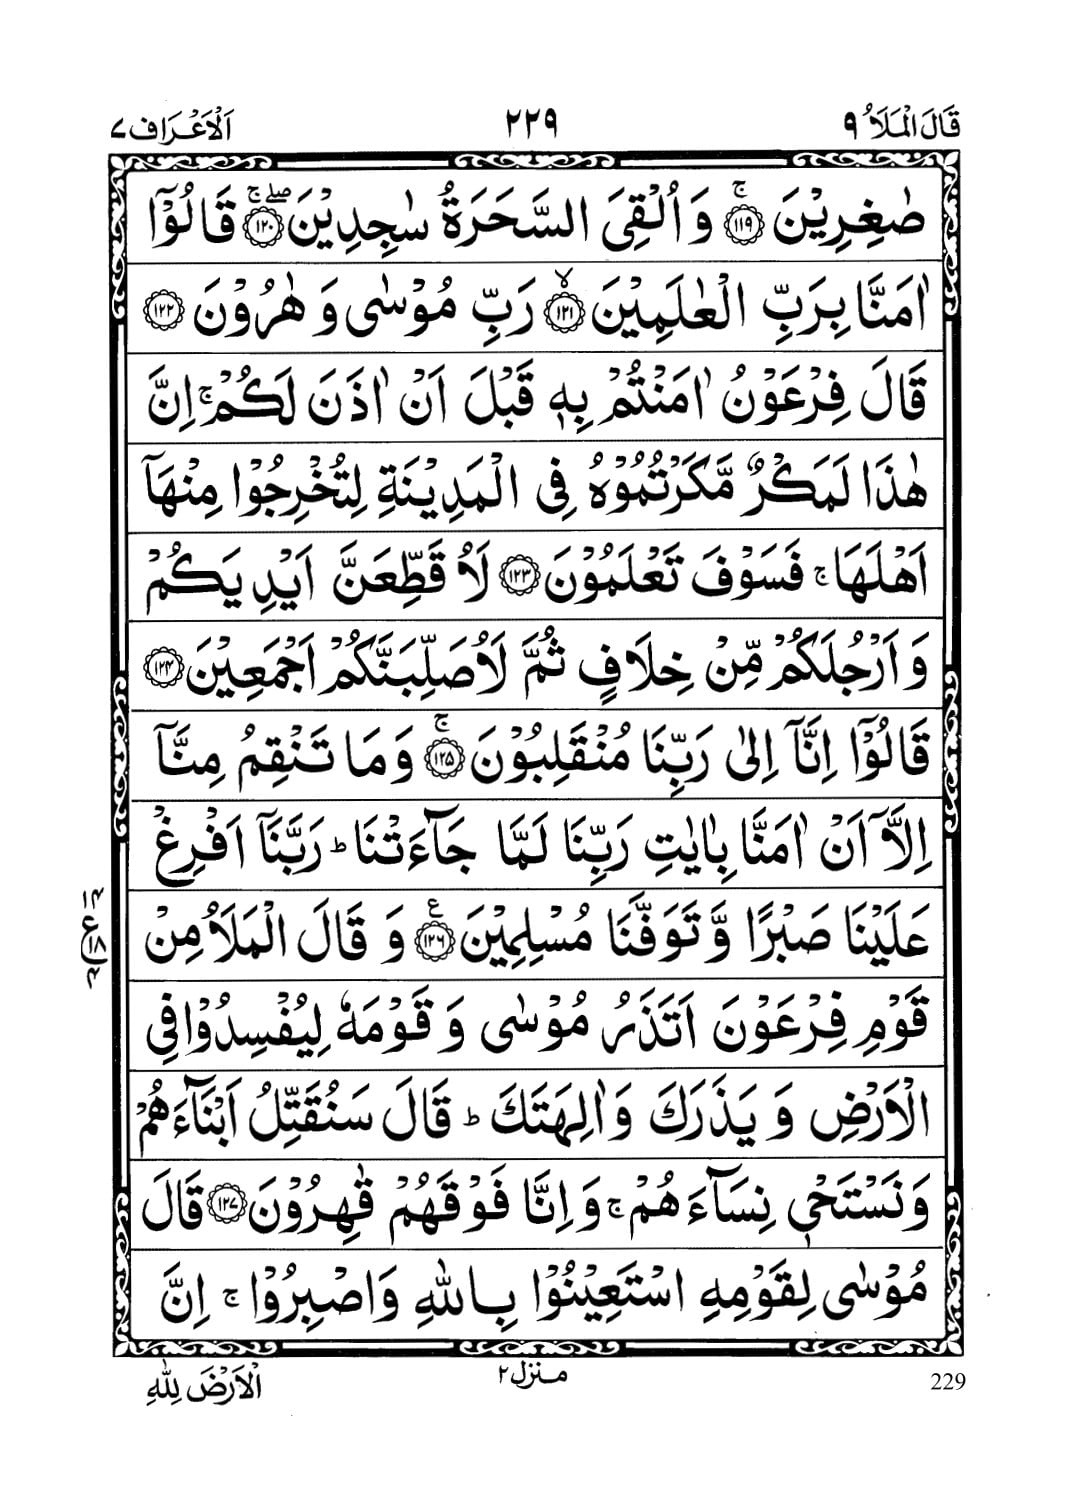 قَالَ الْمَلَاُ ٩
٢٢٩
اَلْاَعْرَاف ٧
صٰغِرِيْنَ ﴿١١٩﴾ۚ وَ اُلْقِىَ السَّحَرَةُ سٰجِدِيْنَ ﴿١٢٠﴾ۖۚ قَالُوْۤا
اٰمَنَّا بِرَبِّ الْعٰلَمِيْنَ ﴿١٢١﴾ۙ رَبِّ مُوْسٰى وَ هٰرُوْنَ ﴿١٢٢﴾
قَالَ فِرْعَوْنُ اٰمَنْتُمْ بِهٖ قَبْلَ اَنْ اٰذَنَ لَكُمْ ۚ اِنَّ
هٰذَا لَمَكْرٌ مَّكَرْتُمُوْهُ فِى الْمَدِيْنَةِ لِتُخْرِجُوْا مِنْهَاۤ
اَهْلَهَا ۚ فَسَوْفَ تَعْلَمُوْنَ ﴿١٢٣﴾ لَاُ قَطِّعَنَّ اَيْدِيَكُمْ
وَ اَرْجُلَكُمْ مِّنْ خِلَافٍ ثُمَّ لَاُصَلِّبَنَّكُمْ اَجْمَعِيْنَ ﴿١٢٤﴾
قَالُوْۤا اِنَّاۤ اِلٰى رَبِّنَا مُنْقَلِبُوْنَ ﴿١٢٥﴾ۚ وَ مَا تَنْقِمُ مِنَّاۤ
اِلَّاۤ اَنْ اٰمَنَّا بِاٰيٰتِ رَبِّنَا لَمَّا جَآءَتْنَا ؕ رَبَّنَاۤ اَفْرِغْ
عَلَيْنَا صَبْرًا وَّ تَوَفَّنَا مُسْلِمِيْنَ ﴿١٢٦﴾ع وَ قَالَ الْمَلَاُ مِنْ
١٤
ع
١٨
٤
قَوْمِ فِرْعَوْنَ اَتَذَرُ مُوْسٰى وَ قَوْمَهٗ لِيُفْسِدُوْا فِى
الْاَرْضِ وَ يَذَرَكَ وَ اٰلِهَتَكَ ؕ قَالَ سَنُقَتِّلُ اَبْنَآءَهُمْ
وَ نَسْتَحْىٖ نِسَآءَهُمْ ۚ وَ اِنَّا فَوْقَهُمْ قٰهِرُوْنَ ﴿١٢٧﴾ قَالَ
مُوْسٰى لِقَوْمِهِ اسْتَعِيْنُوْا بِاللّٰهِ وَاصْبِرُوْا ۚ اِنَّ
منزل ٢
الْاَرْضَ لِلّٰهِ
229